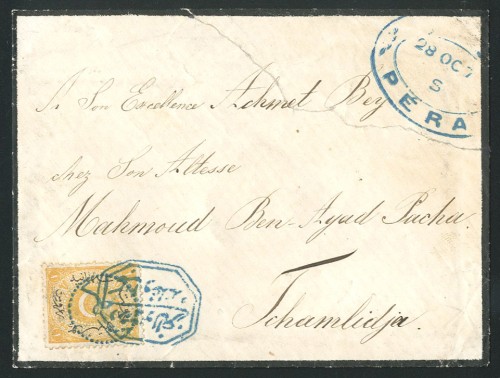 28 OCT
S
PÉRA
A Son Excellence Achmet Bey
chez Son Altesse
Mahmoud Ben-Ayad Pacha
Tchamlidja.